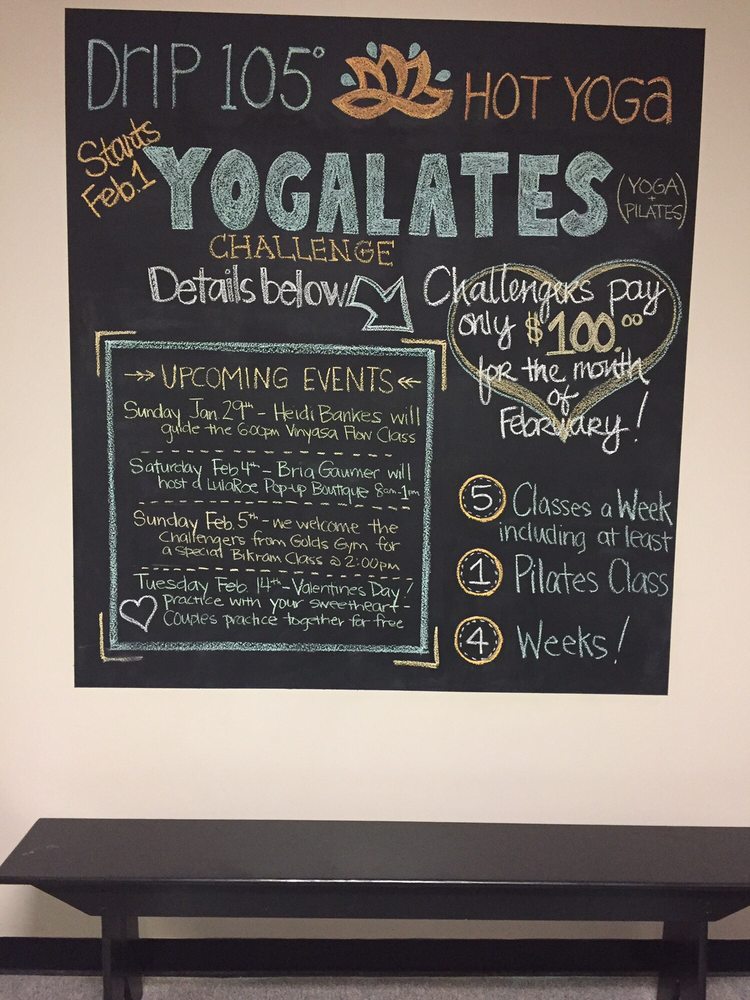 Drip 105° HOT YOGA
Starts
Feb. 1
YOGALATES
(YOGA
+
PILATES)
CHALLENGE
Details below
Challengers pay
only $100.00
for the month
of
February!
UPCOMING EVENTS
Sunday Jan 29th - Heidi Bankes will
guide the 6:00pm Vinyasa Flow Class
Saturday Feb 4th - Bria Gaumer will
host a LulaRoe Pop-up Boutique 8am-1pm
Sunday Feb. 5th - we welcome the
Challengers from Golds Gym for
a special Bikram Class @ 2:00pm
Tuesday Feb. 14th - Valentines Day!
practice with your sweetheart -
Couples practice together for free
5 Classes a Week
including at least
1 Pilates Class
4 Weeks!